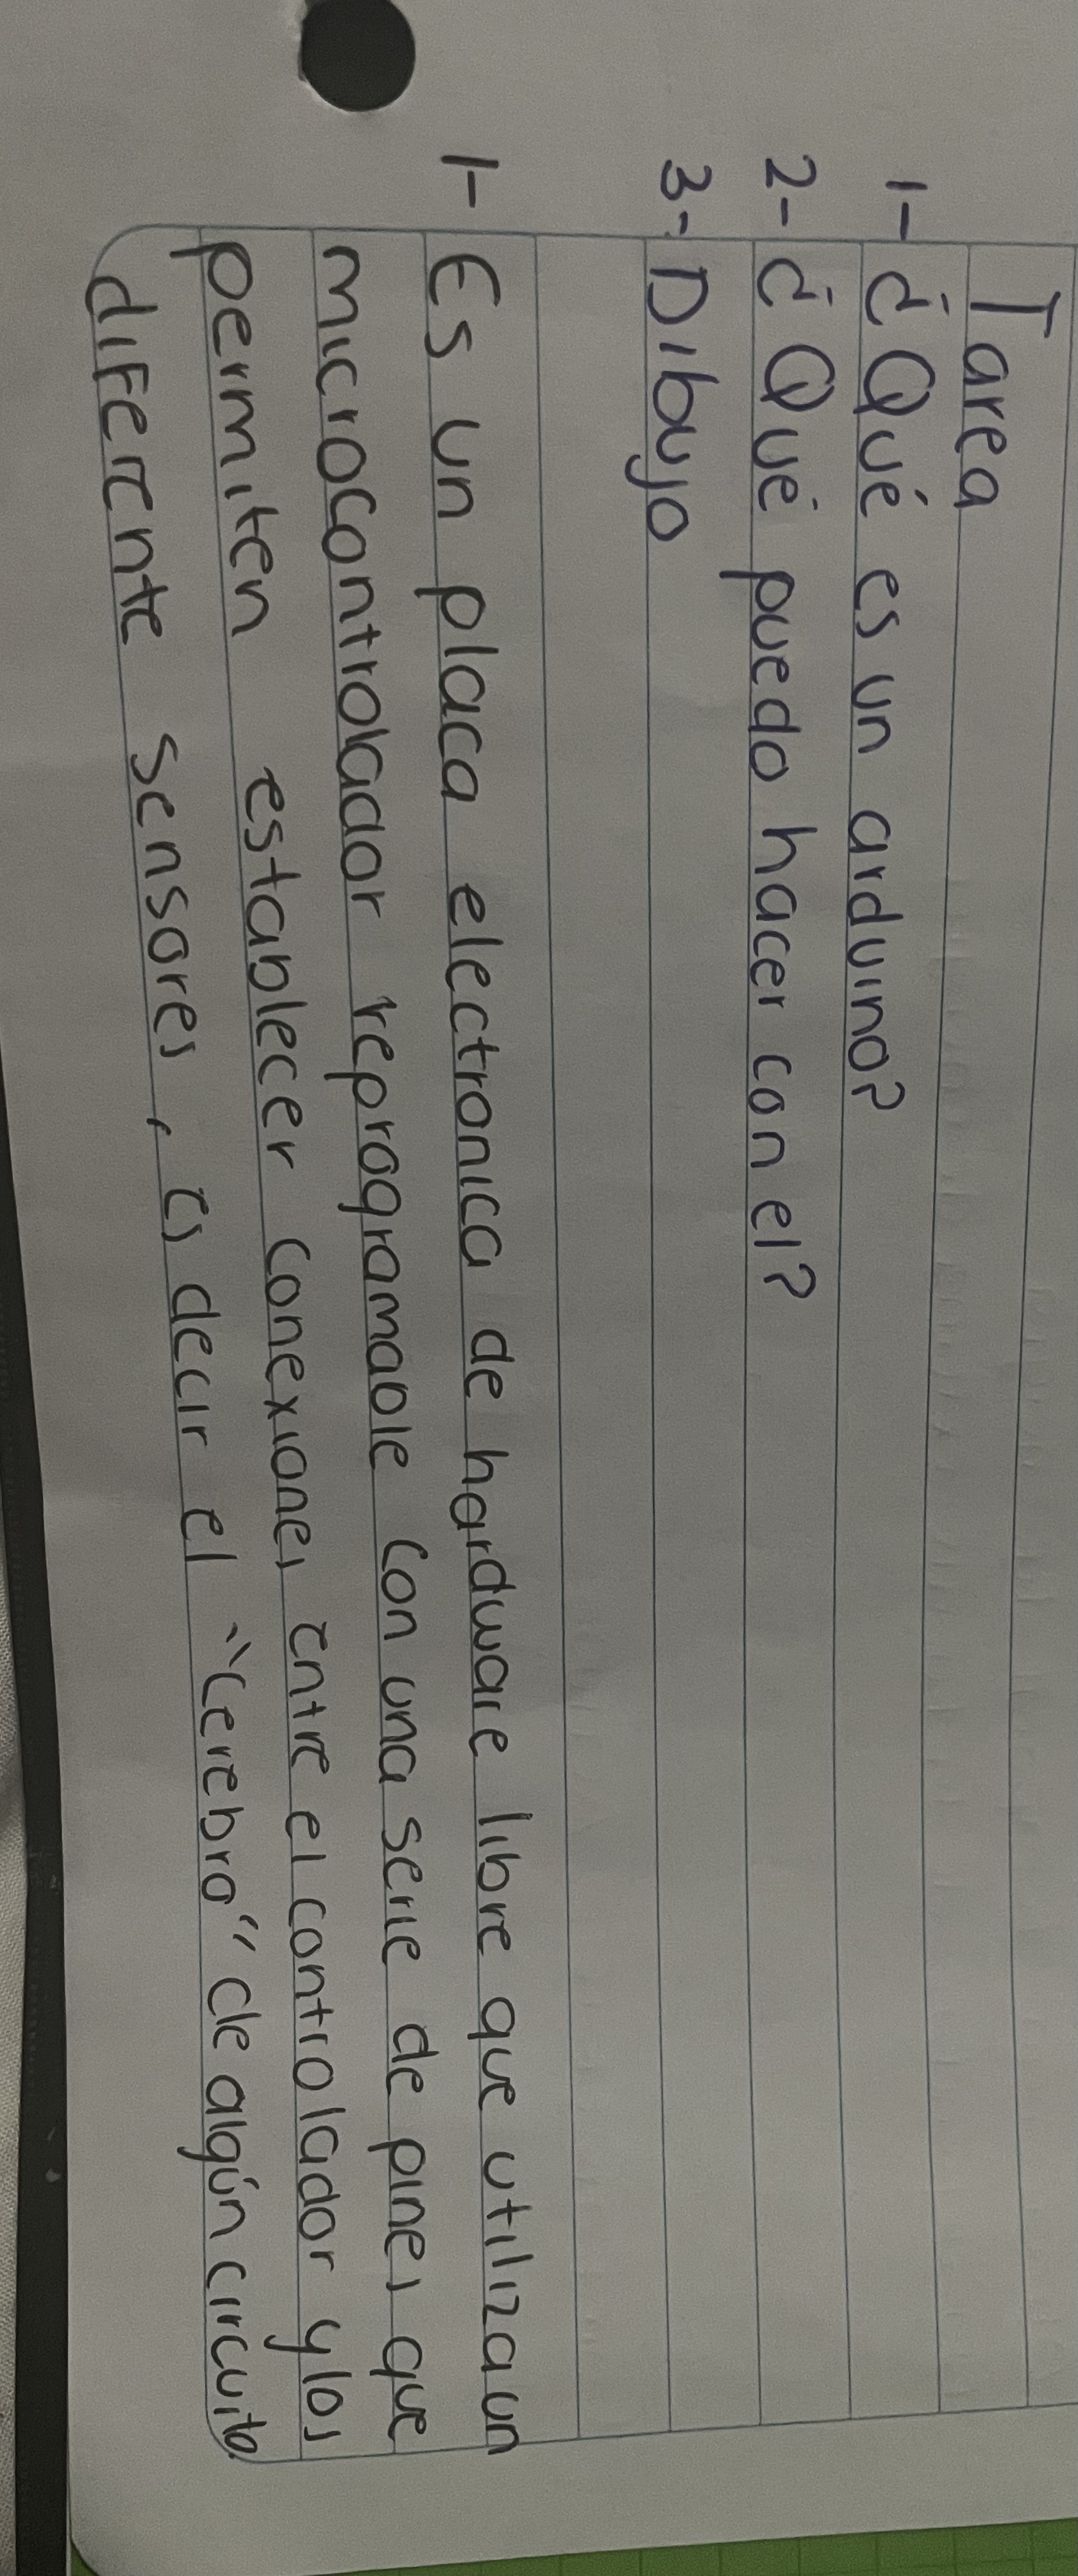 Tarea
1- ¿Qué es un arduino?
2- ¿Qué puedo hacer con el?
3- Dibujo
1- Es un placa electronica de hardware libre que utiliza un
microcontrolador reprogramable con una serie de pines que
permiten establecer conexiones entre el controlador y los
diferente sensores, es decir el "cerebro" de algún circuito